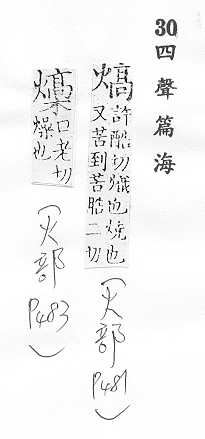 30 四聲篇海
熇 許酷切熾也燒也
又苦到苦晧二切
(火部 P481)
燺 口老切
燥也
(火部 P483)